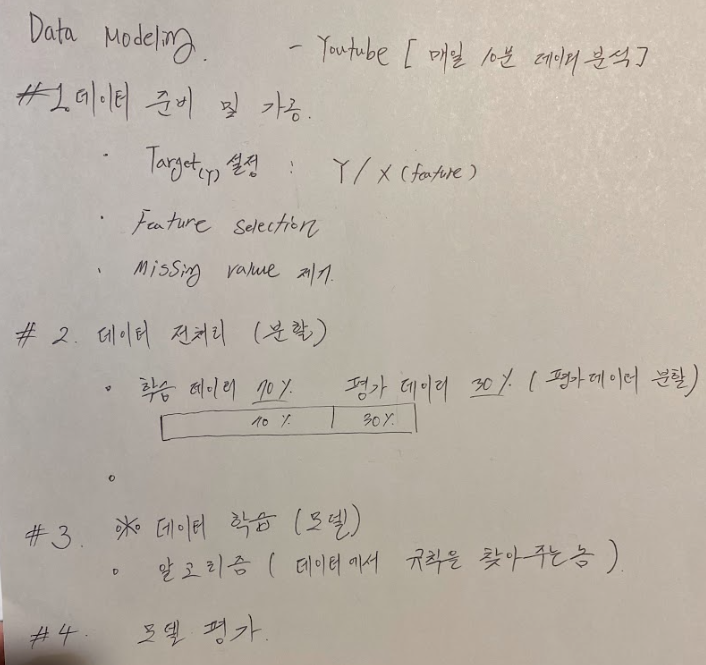 Data Modeling. - Youtube [ 매일 10분 데이터 분석 ]
#1. 데이터 준비 및 가공.
· Target(Y) 설정 : Y / X (feature)
· Feature selection
· Missing value 제거.
# 2. 데이터 전처리 (분할)
∘ 학습 데이터 70%. 평가 데이터 30%. ( 평가데이터 분할)
70%. 30%.
∘
#3. ※ 데이터 학습 (모델)
∘ 알고리즘 ( 데이터에서 규칙을 찾아주는 놈 ).
#4. 모델 평가.